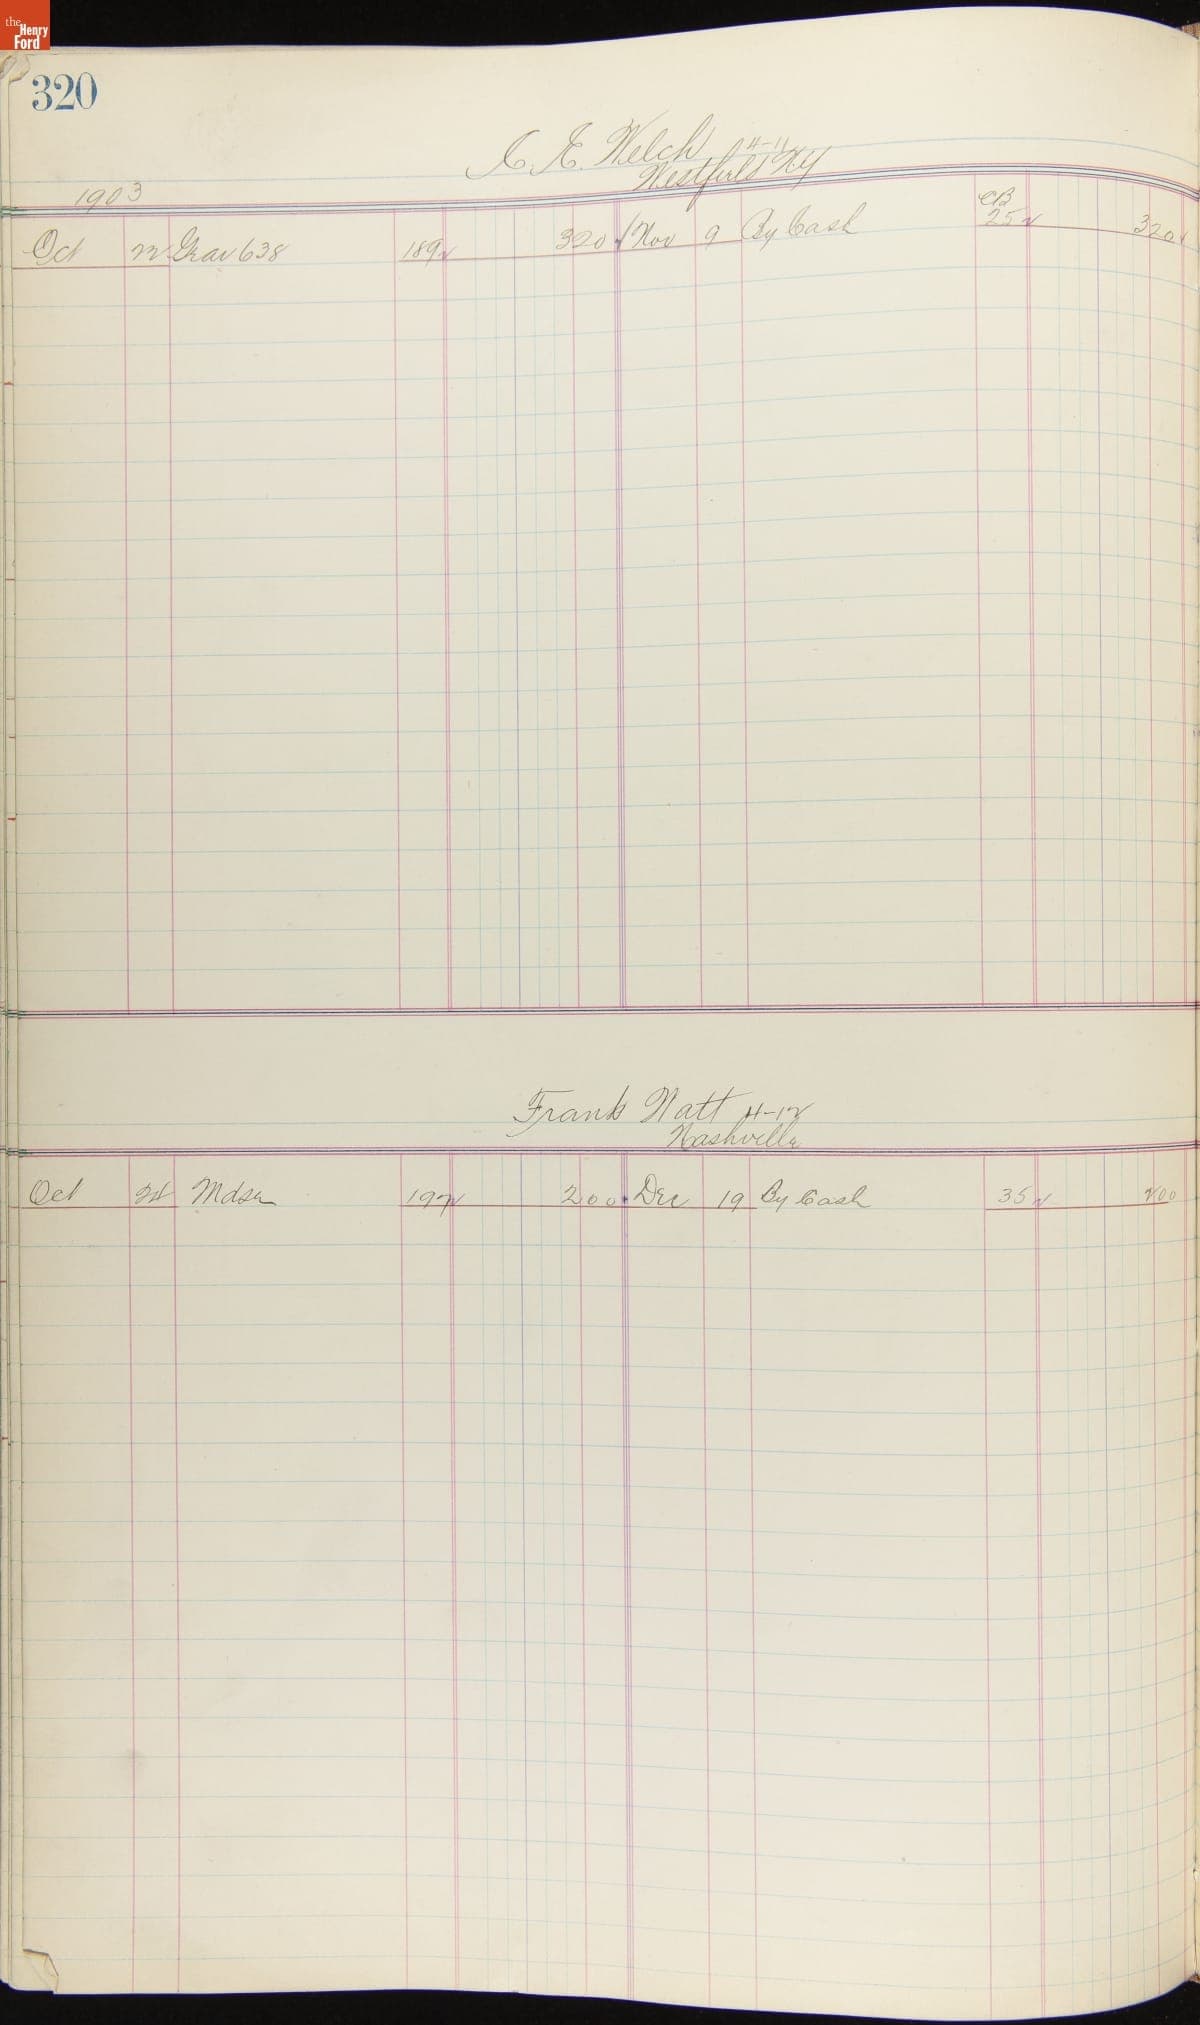 the
Henry
Ford
320
E. Welch 4-11
Westfield NY
1903
CB
Oct 638 189 320 Nov 9 By Cash 25 320
Frank Watt 4-12
Nashville
Oct Mdse 197 200 Dec 19 By Cash 35 200